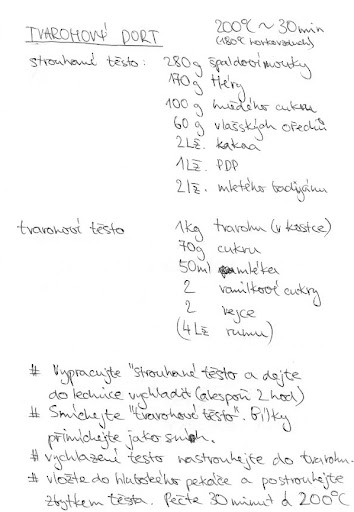 TVAROHOVÝ DORT 200°C ~ 30min
(180°C horkovzduch)
strouhané těsto: 280g špaldové mouky
170g Hery
100g hnědého cukru
60g vlašských ořechů
2Lž. kakaa
1Lž. PDP
2lž. mletého badyánu
tvarohové těsto 1kg tvarohu (v kostce)
70g cukru
50ml mléka
2 vanilkové cukry
2 vejce
(4Lž rumu)
# Vypracujte "strouhané těsto a dejte
do lednice vychladit (alespoň 2 hod)
# Smíchejte "tvarohové těsto". Bílky
přimíchejte jako sníh.
# vychlazené těsto nastrouhejte do tvarohu.
# vložte do hlubokého pekáče a postrouhejte
zbytkem těsta. Pečte 30 minut á 200°C